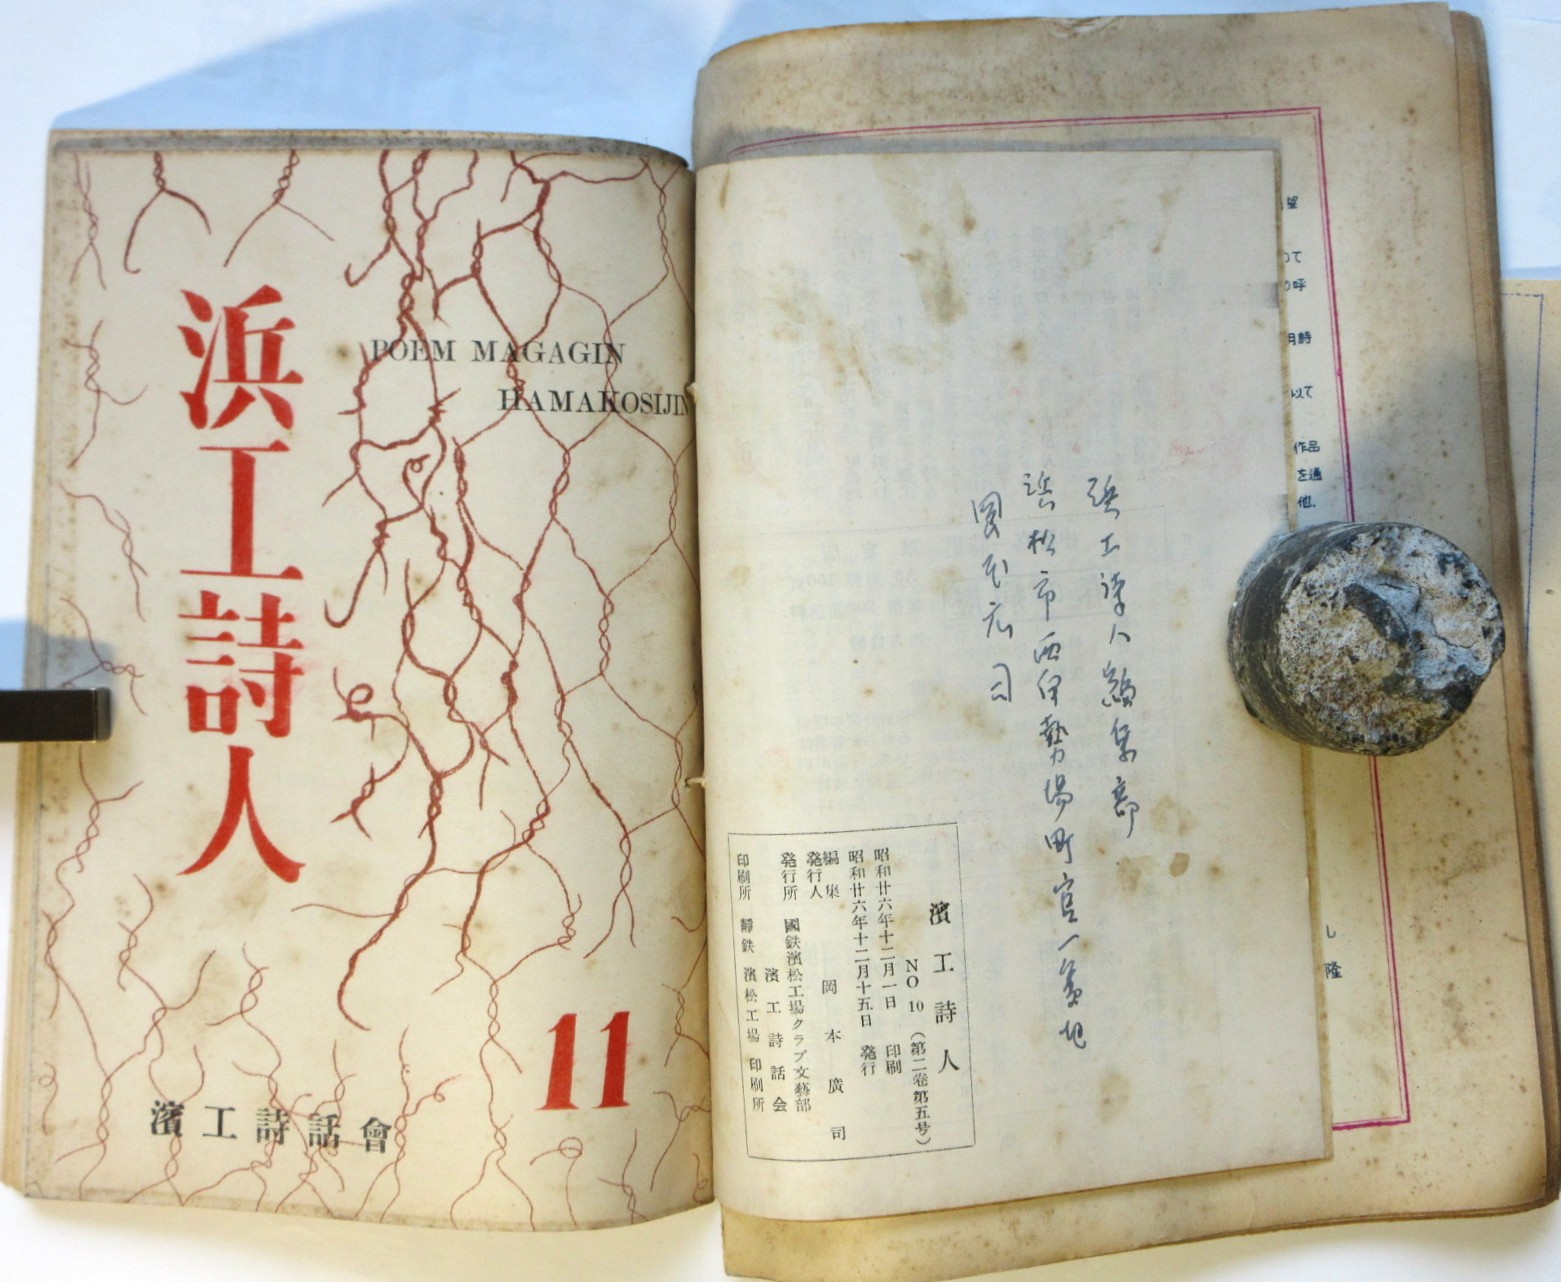 浜工詩人
POEM MAGAGIN
HAMAKOSIJIN
11
濱工詩話會
浜工詩人編集部
浜松市西伊勢場町官一番地
岡本広司
濱工詩人
NO 10 (第二卷第五号)
昭和廿六年十二月一日 印刷
昭和廿六年十二月十五日 発行
編集
発行人 岡本廣司
発行所 國鉄濱松工場クラブ文藝部
濱工詩話会
印刷所 靜鉄濱松工場印刷所
望
て
の呼
月詩
以て
作品
を通
他、
し
隆